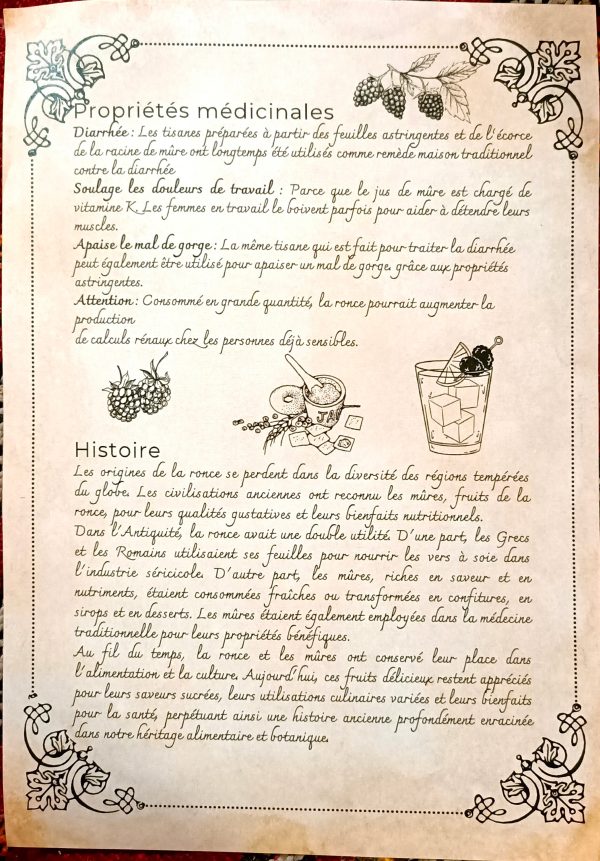 Propriétés médicinales
Diarrhée : Les tisanes préparées à partir des feuilles astringentes et de l'écorce
de la racine de mûre ont longtemps été utilisés comme remède maison traditionnel
contre la diarrhée
Soulage les douleurs de travail : Parce que le jus de mûre est chargé de
vitamine K. Les femmes en travail le boivent parfois pour aider à détendre leurs
muscles.
Apaise le mal de gorge : La même tisane qui est fait pour traiter la diarrhée
peut également être utilisé pour apaiser un mal de gorge. grâce aux propriétés
astringentes.
Attention : Consommé en grande quantité, la ronce pourrait augmenter la
production
de calculs rénaux chez les personnes déjà sensibles.
JA
Histoire
Les origines de la ronce se perdent dans la diversité des régions tempérées
du globe. Les civilisations anciennes ont reconnu les mûres, fruits de la
ronce, pour leurs qualités gustatives et leurs bienfaits nutritionnels.
Dans l'Antiquité, la ronce avait une double utilité. D'une part, les Grecs
et les Romains utilisaient ses feuilles pour nourrir les vers à soie dans
l'industrie séricicole. D'autre part, les mûres, riches en saveur et en
nutriments, étaient consommées fraîches ou transformées en confitures, en
sirops et en desserts. Les mûres étaient également employées dans la médecine
traditionnelle pour leurs propriétés bénéfiques.
Au fil du temps, la ronce et les mûres ont conservé leur place dans
l'alimentation et la culture. Aujourd'hui, ces fruits délicieux restent appréciés
pour leurs saveurs sucrées, leurs utilisations culinaires variées et leurs bienfaits
pour la santé, perpétuant ainsi une histoire ancienne profondément enracinée
dans notre héritage alimentaire et botanique.